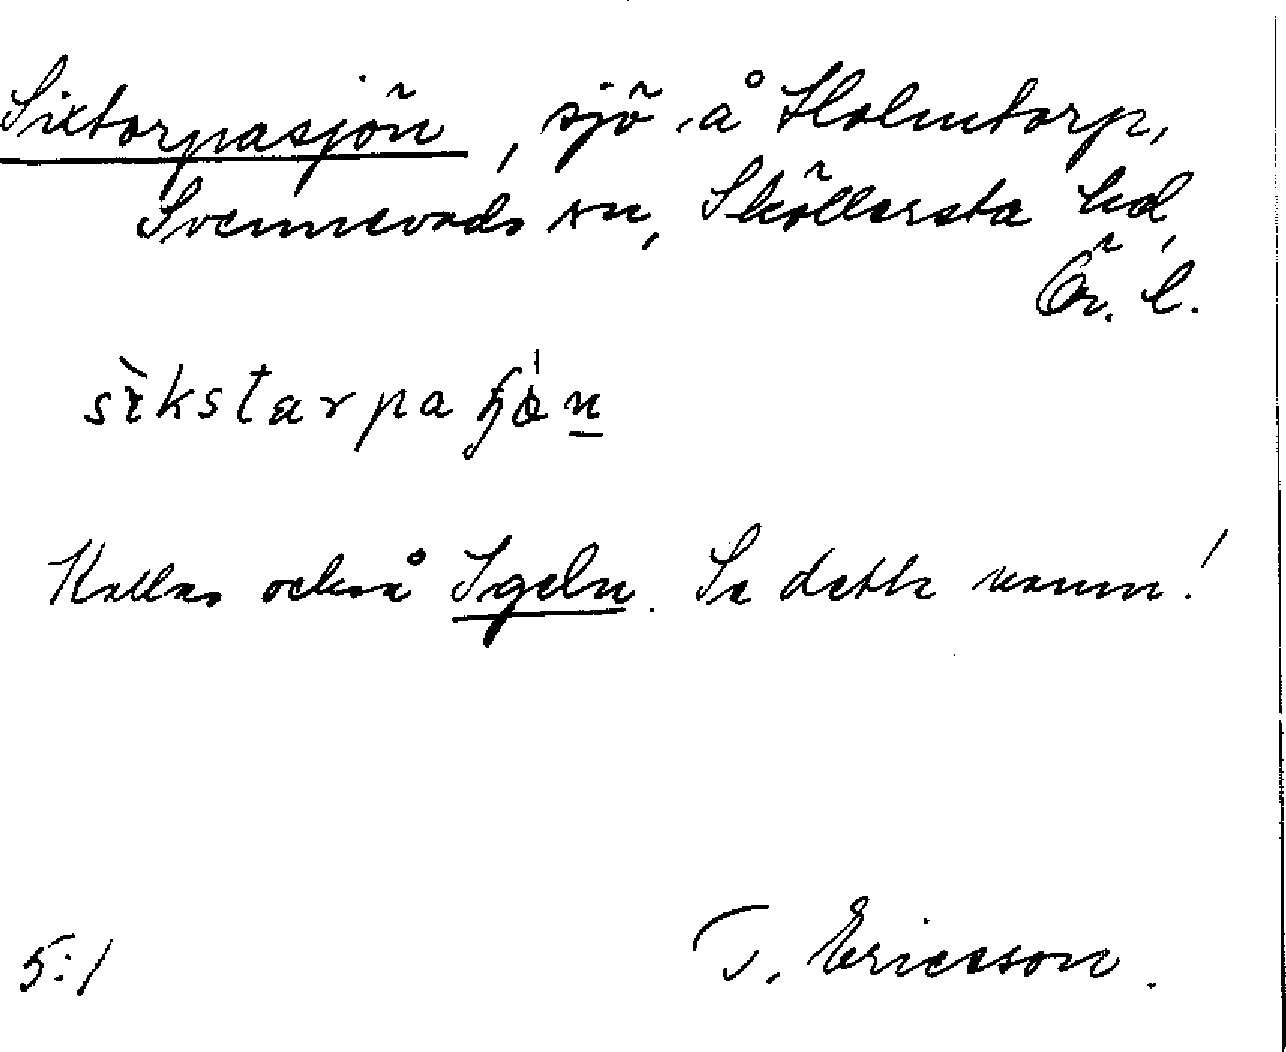 Sixtorpasjön, sjö, å Holmtorp,
Svennevads sn, Sköllersta hd,
Ör. l.
sìkstarpa
Kallas också Igeln. Se detta namn!
5:1 T. Ericsson.